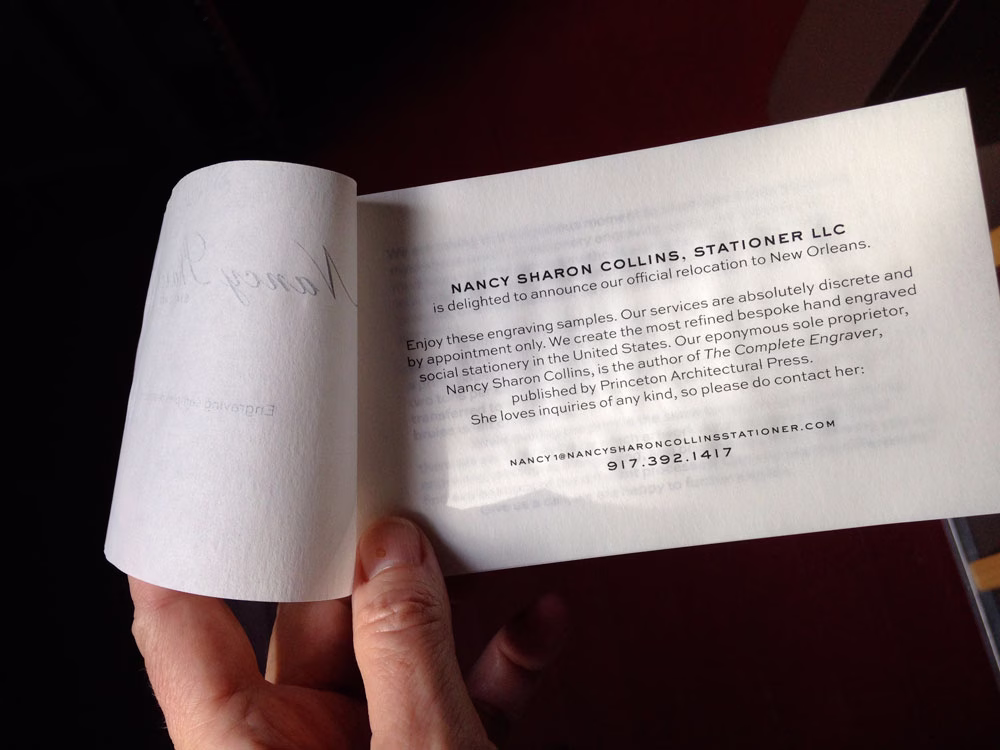 Nancy
Engraving
NANCY SHARON COLLINS, STATIONER LLC
is delighted to announce our official relocation to New Orleans.
Enjoy these engraving samples. Our services are absolutely discrete and
by appointment only. We create the most refined bespoke hand engraved
social stationery in the United States. Our eponymous sole proprietor,
Nancy Sharon Collins, is the author of The Complete Engraver,
published by Princeton Architectural Press.
She loves inquiries of any kind, so please do contact her:
NANCY1@NANCYSHARONCOLLINSSTATIONER.COM
917.392.1417